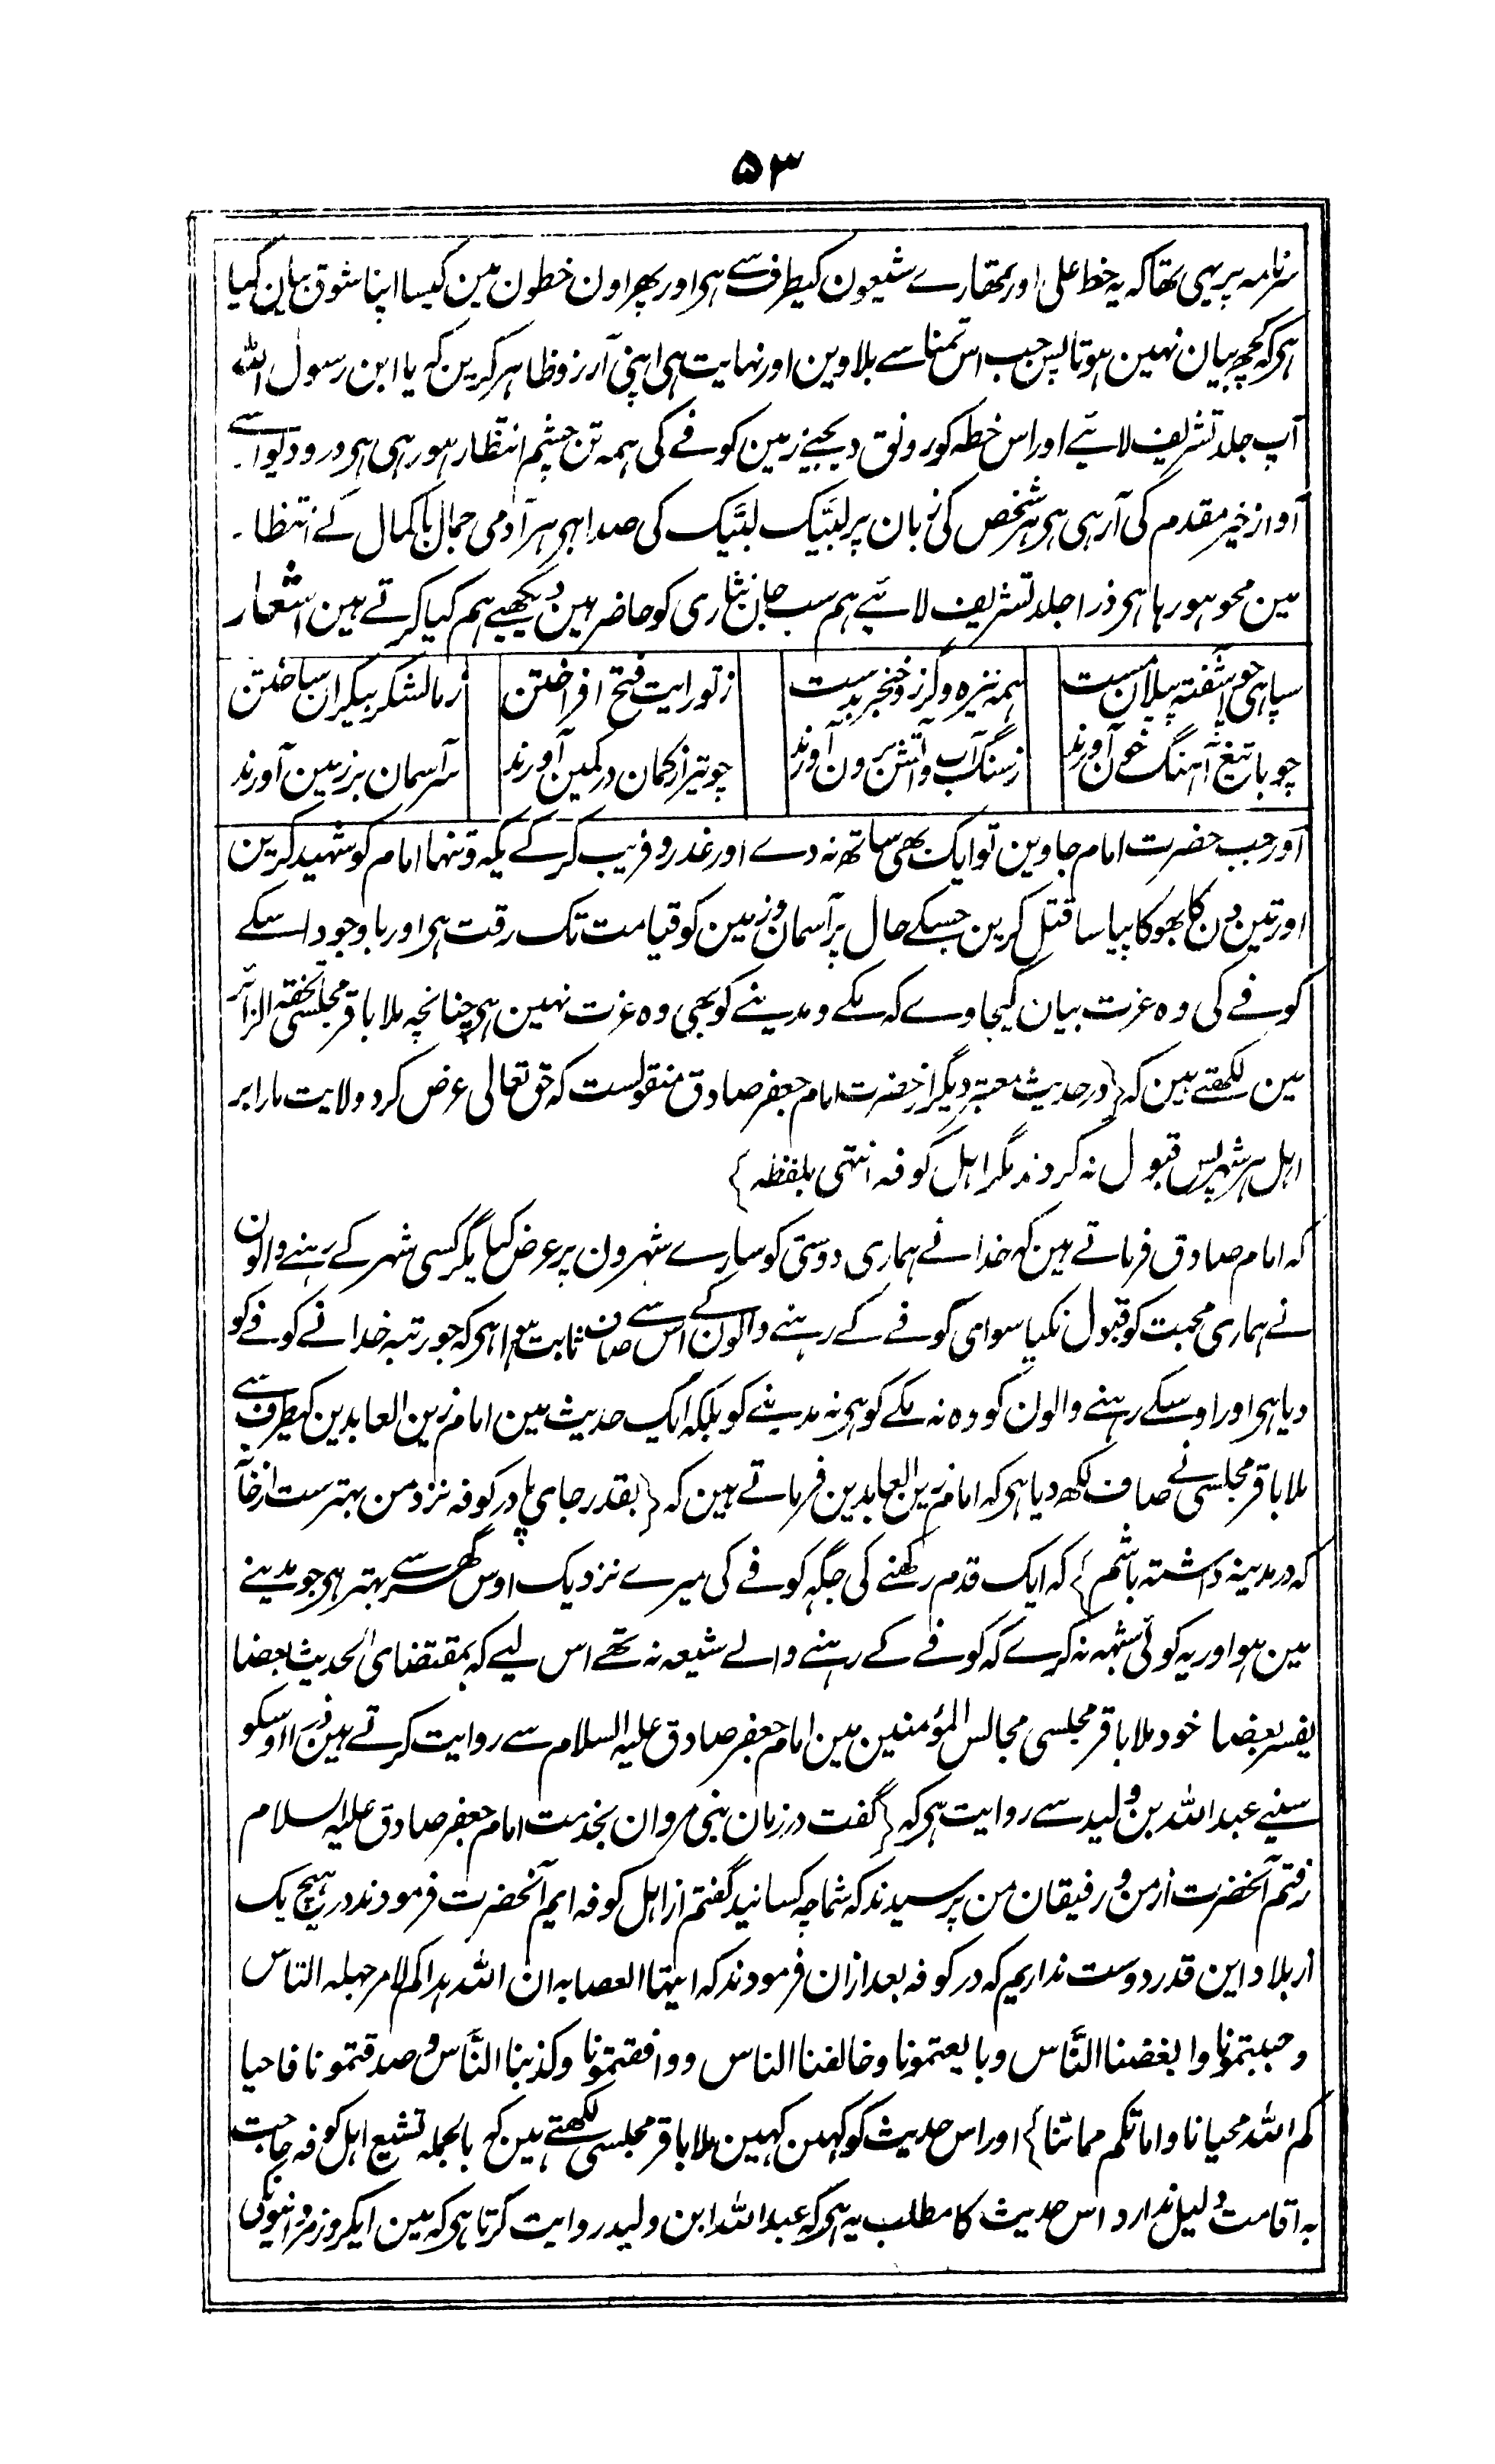 ۵۳
سرنامہ پر یہی تھا کہ یہ خط علی اور تمھارے شیعون کیطرف سے ہی اور پھر اون خطون مین کیسا اپنا شوق بیان کیا
ہی کہ کچھ بیان نہین ہوتا پس جب اس تمنا سے بلاوین اور نہایت ہی اپنی آرزو ظاہر کرین کہ یا ابن رسول اللہ
آپ جلد تشریف لائیے اور اس خطہ کو رونق دیجیے زمین کوفے کی ہمہ تن چشم انتظار ہو رہی ہی در و دیوار سے
آواز خیر مقدم کی آرہی ہی ہر شخص کی زبان پر لبّیک لبّیک کی صدا ہی ہر آدمی جمال باکمال کے انتظار
مین محو ہو رہا ہی ذرا جلد تشریف لائیے ہم سب جان نثاری کو حاضر ہین دیکھیے ہم کیا کرتے ہین اشعار
سپاہی چو آشفتہ پیلان مست ہمہ نیزہ و گرز و خنجر بدست ز تو رایت فتح افراختن ز ما لشکر بیکران ساختن
چو با تیغ آہنگ خون آورند ز سنگ آب و آتش برون آورند چو تیر از کمان در کمین آورند سر آسمان بر زمین آورند
اور جب حضرت امام جاوین تو ایک بھی ساتھ نہ دے اور غدر و فریب کرکے یکہ و تنہا امام کو شہید کرین
اور تین دن کا بھوکا پیاسا قتل کرین جسکے حال پر آسمان و زمین کو قیامت تک رقت ہی اور باوجود اسکے
کوفے کی وہ عزت بیان کیجاوے کہ مکے و مدینے کو بھی وہ عزت نہین ہی چنانچہ ملا باقر مجلسی تحفۃ الزائر
مین لکھتے ہین کہ {در حدیث معتبر دیگر از حضرت امام جعفر صادق منقولست کہ حق تعالی عرض کرد ولایت ما را بر
اہل ہر شہر پس قبول نہ کردند مگر اہل کوفہ انتہی بلفظہ}
کہ امام صادق فرماتے ہین کہ خدا نے ہماری دوستی کو سارے شہرون پر عرض کیا مگر کسی شہر کے رہنے والون
نے ہماری محبت کو قبول نکیا سوای کوفے کے رہنے والون کے اس سے صاف ثابت ہوا ہی کہ جو رتبہ خدا نے کوفے کو
دیا ہی اور اوسکے رہنے والون کو وہ نہ مکے کو ہی نہ مدینے کو بلکہ ایک حدیث مین امام زین العابدین کیطرف سے
ملا باقر مجلسی نے صاف لکھ دیا ہی کہ امام زین العابدین فرماتے ہین کہ {بقدر جای پا در کوفہ نزد من بہتر ست از خانہ
کہ در مدینہ داشتہ باشم} کہ ایک قدم رکھنے کی جگہ کوفے کی میرے نزدیک اوس گھر سے بہتر ہی جو مدینے
مین ہو اور یہ کوئی شبہہ نہ کرے کہ کوفے کے رہنے والے شیعہ نہ تھے اس لیے کہ بمقتضای الحدیث بعضا
یفسر بعضا خود ملا باقر مجلسی مجالس المؤمنین مین امام جعفر صادق علیہ السلام سے روایت کرتے ہین ذرا اوسکو
سنیے عبداللہ بن ولید سے روایت ہی کہ {گفت در زمان بنی مروان بخدمت امام جعفر صادق علیہ السلام
رفتم آنحضرت از من و رفیقان من پرسیدند کہ شما چہ کسانید گفتم از اہل کوفہ ایم آنحضرت فرمودند در ہیچ یک
از بلاد این قدر دوست نداریم کہ در کوفہ بعد ازان فرمودند کہ ایتہا العصابہ ان اللہ ہداکم لامر جہلہ الناس
و حببتمونا و ابغضنا النَّاس و بایعتمونا و خالفنا الناس و وافقتمونا و کذبنا النَّاس و صدقتمونا فاحیا
کم اللہ محیانا و اماتکم مماتنا} اور اس حدیث کو کہین کہین ملا باقر مجلسی لکھتے ہین کہ بالجملہ تشیع اہل کوفہ حاجت
بہ اقامت دلیل ندارد اس حدیث کا مطلب یہ ہی کہ عبداللہ ابن ولید روایت کرتا ہی کہ مین ایکروز مروانیونکی